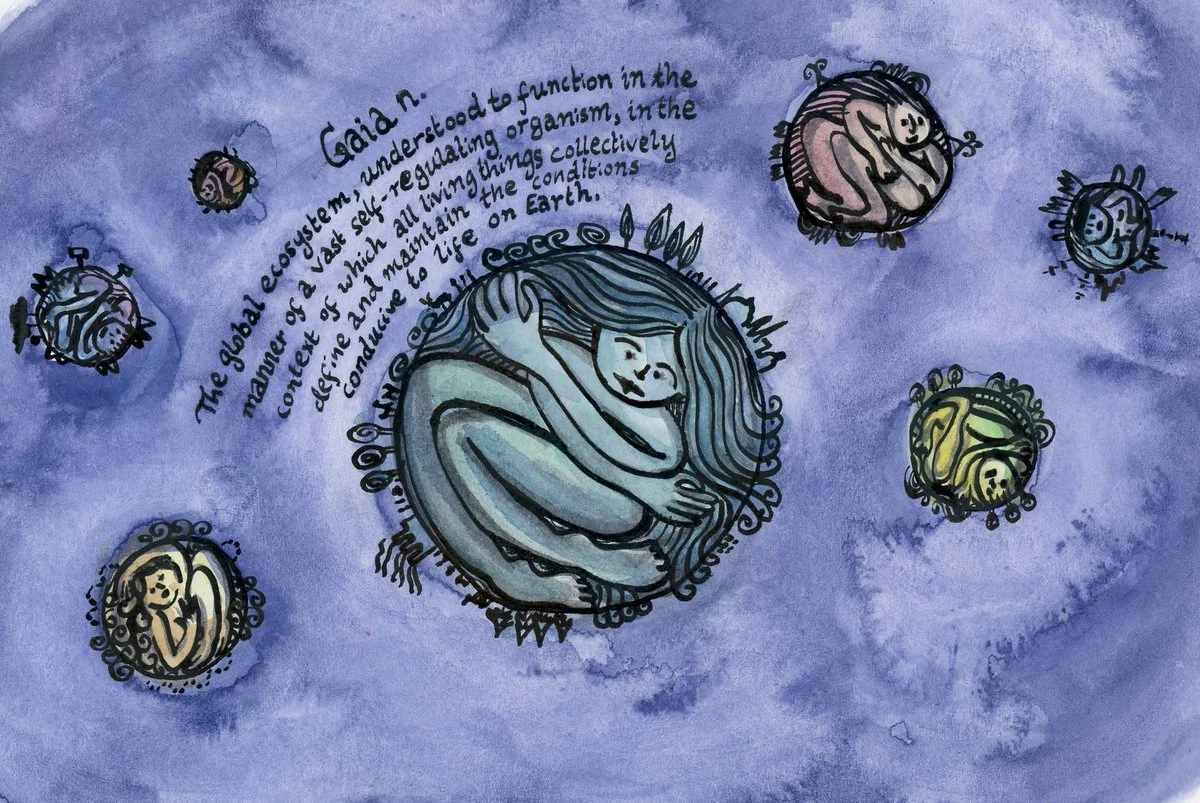 Gaia n.
The global ecosystem, understood to function in the
manner of a vast self-regulating organism, in the
context of which all living things collectively
define and maintain the conditions
conducive to life on Earth.